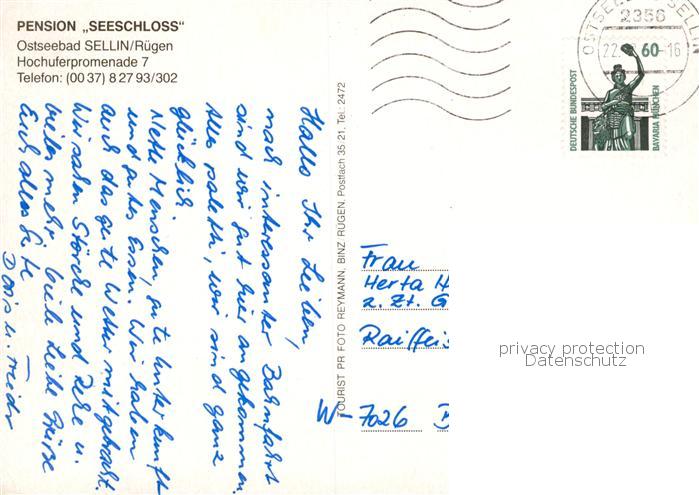 PENSION „SEESCHLOSS"
Ostseebad SELLIN/Rügen
Hochuferpromenade 7
Telefon: (00 37) 8 27 93/302
Hallo Ihr Lieben,
nach interessanter Bahnfahrt
sind wir gut hier angekommen.
Alles paletti, wir sind ganz
glücklich
Nette Menschen, gute Unterkunft
und gutes Essen. Wir haben
auch das gute Wetter mitgebracht.
Wir sahen Störche und Rehe u.
vieles mehr. Viele liebe Grüße
Euch alles Gute
Doris u. Frieder
TOURIST PR FOTO REYMANN, BINZ RÜGEN, Postfach 35 21, Tel.: 2472
OSTSEEBAD SELLIN
2356
22. 60-16
DEUTSCHE BUNDESPOST
BAVARIA MÜNCHEN
Frau
Herta H
z. Zt. G
Raiffeis
W-7026 B
privacy protection
Datenschutz